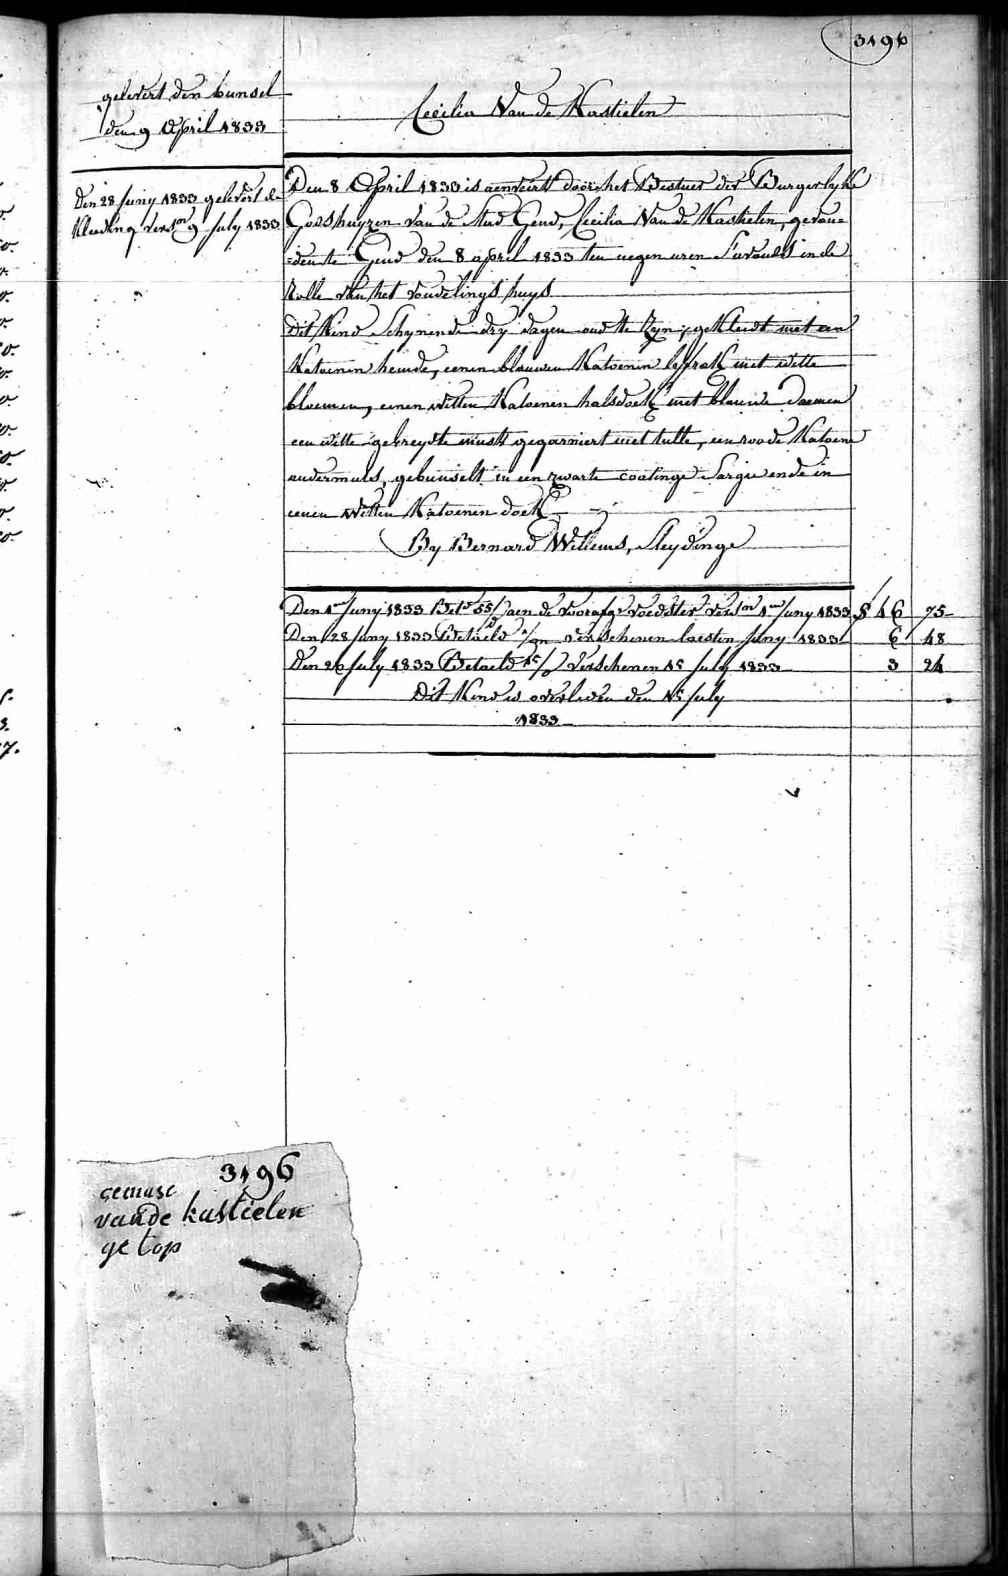 3196
gelevert den bunsel
den 9 April 1833
Cecilia Van de Kastielen
Den 28 Juny 1833 gelevert de
Kleeding versn 9 July 1833
Den 8 April 1833 is aenveirt door het Bestuer der Burgerlyke
Godshuyzen van de Stad Gend, Cecilia Van de Kastielen, gevon=
=den te Gend den 8 april 1833 ten negen uren s'avonds in de
Rolle van het vondelings huys
Dit Kind Schynende dry dagen oud te Zyn, gekleedt met een
Katoenen hemde, eenen blauwen Katoenen lesfrak met witte
bloemen, eenen witten Katoenen halsdoek met blauwe
een witte gebreyde muts gegarniert met tulle, een roode Katoene
ondermuts, gebunselt in een zwarte coatinge Sargie ende in
eenen Witten Katoenen doek
By Bernard Willems, Sleydinge
Den 1en Juny 1833 Bet. 55/ aen de voedster versn 1en Juny 1833 f 46 75
Den 28 Juny 1833 Betaeld verschenen laesten Juny 1833 6 48
Den 26 July 1833 Betaeld 15/ verschenen 15 July 1833 3 24
Dit Kind is overleden den 15 July
1833
3196
vande kastielen
ge top